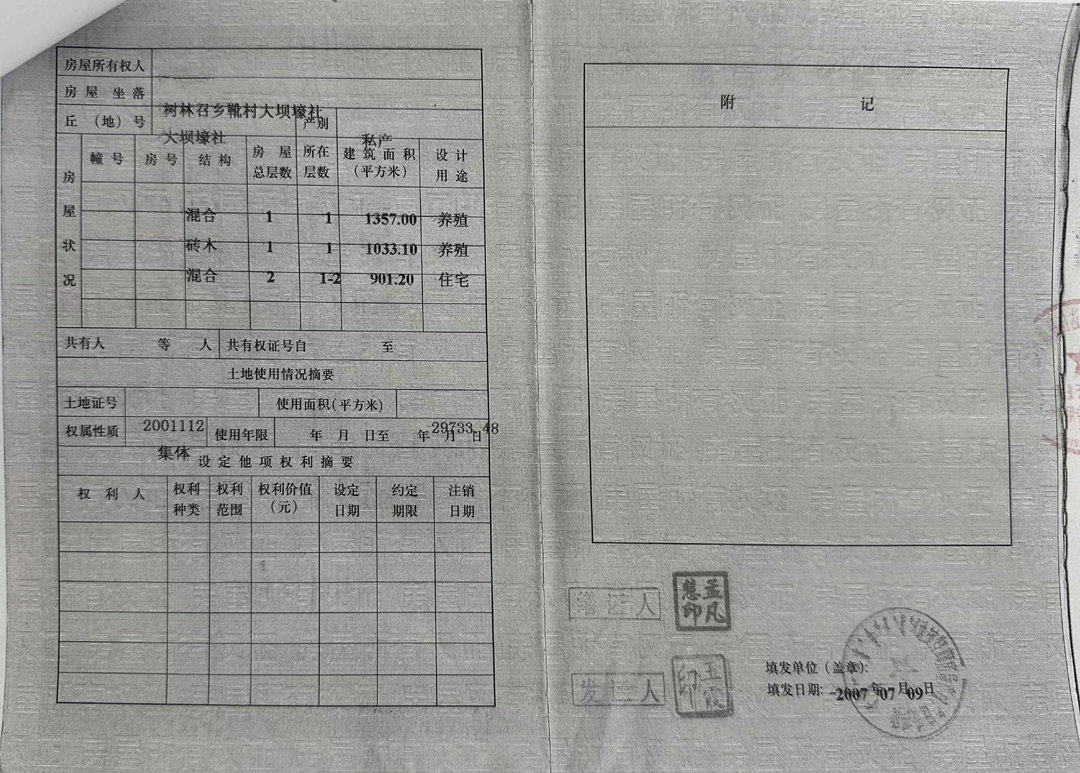 房屋所有权人
房屋坐落
树林召乡靴村大坝壕社
丘（地）号
产别
大坝壕社
私产
房屋状况
幢号 房号 结构 房屋总层数 所在层数 建筑面积（平方米） 设计用途
混合 1 1 1357.00 养殖
砖木 1 1 1033.10 养殖
混合 2 1-2 901.20 住宅
共有人 等 人 共有权证号自 至
土地使用情况摘要
土地证号 使用面积(平方米)
2001112 29733.48
权属性质 使用年限 年 月 日至 年 月 日
集体
设定他项权利摘要
权利人 权利种类 权利范围 权利价值（元） 设定日期 约定期限 注销日期
附 记
缮证人
孟凡慧印
发证人
王霞印
填发单位（盖章）：
填发日期: 2007年07月09日